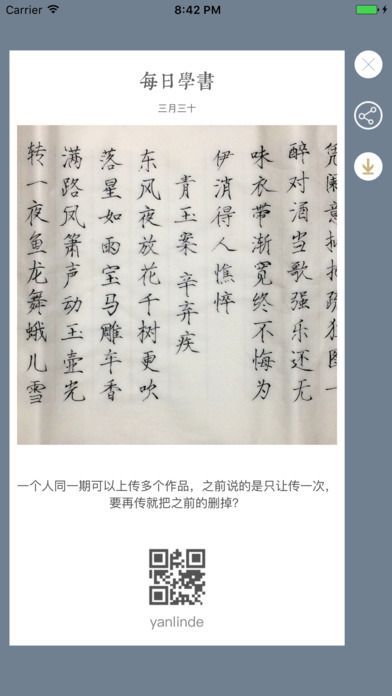 Carrier 8:42 PM
每日學書
三月三十
凭阑意拟把疏狂图一
醉对酒当歌强乐还无
味衣带渐宽终不悔为
伊消得人憔悴
青玉案 辛弃疾
东风夜放花千树更吹
落星如雨宝马雕车香
满路凤箫声动玉壶光
转一夜鱼龙舞蛾儿雪
一个人同一期可以上传多个作品，之前说的是只让传一次，
要再传就把之前的删掉？
yanlinde